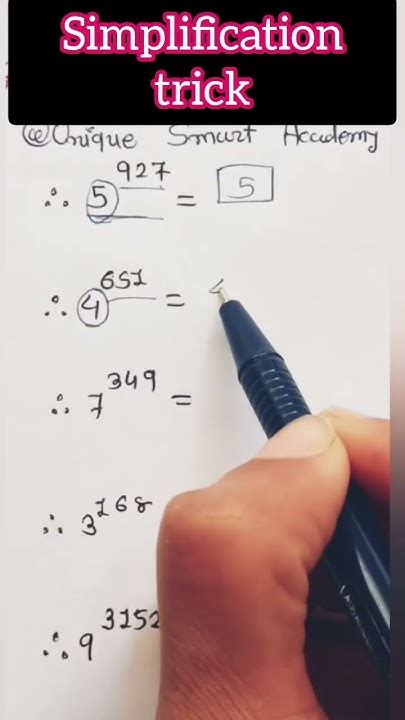 Simplification
trick
@Unique Smart Academy
∴ 5^927 = 5
∴ 4^651 =
∴ 7^349 =
∴ 3^168
∴ 9^3152